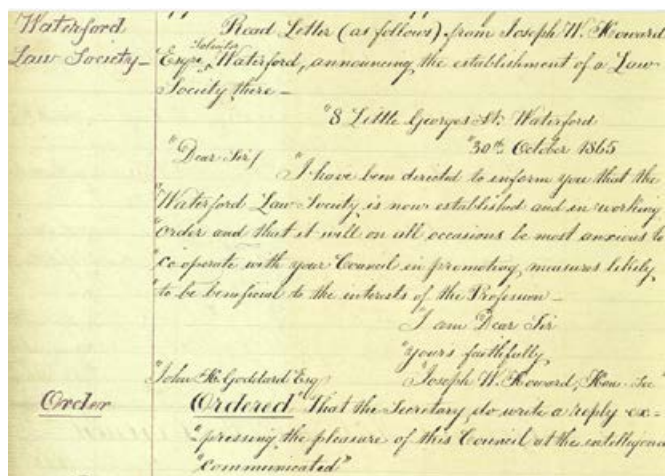 Waterford
Law Society –
Read Letter (as follows) from Joseph W. Howard
Solicitor
Esqre Waterford, announcing the establishment of a Law
Society there –
"8 Little Georges St. Waterford
"30th October 1865
"Dear Sir/
"I have been directed to inform you that the
"Waterford Law Society is now established and in working
"order and that it will on all occasions be most anxious to
"co operate with your Council in promoting measures likely
"to be beneficial to the interests of the Profession –
"I am Dear Sir
"yours faithfully
"John H. Goddard Esq "Joseph W. Howard, Hon. Sec"
Order
Ordered "That the Secretary do write a reply ex=
"pressing the pleasure of this Council at the intelligence
"communicated"